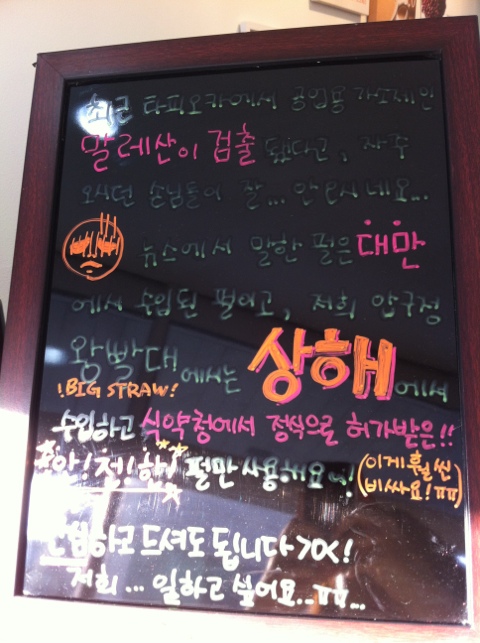 최근 타피오카에서 공업용 가소제인
말레산이 검출 됐다고, 자주
오시던 손님들이 잘... 안 오시네요...
뉴스에서 말한 펄은 대만
에서 수입된 펄이고, 저희 압구정
왕빨대에서는 상해에서
!BIG STRAW!
수입하고 식약청에서 정식으로 허가받은!!
아!전!한! 펄만 사용해요~! (이게 훨씬 비싸요!ㅠㅠ)
안심하고 드셔도 됩니다
저희... 일하고 싶어요..ㅠㅠ...